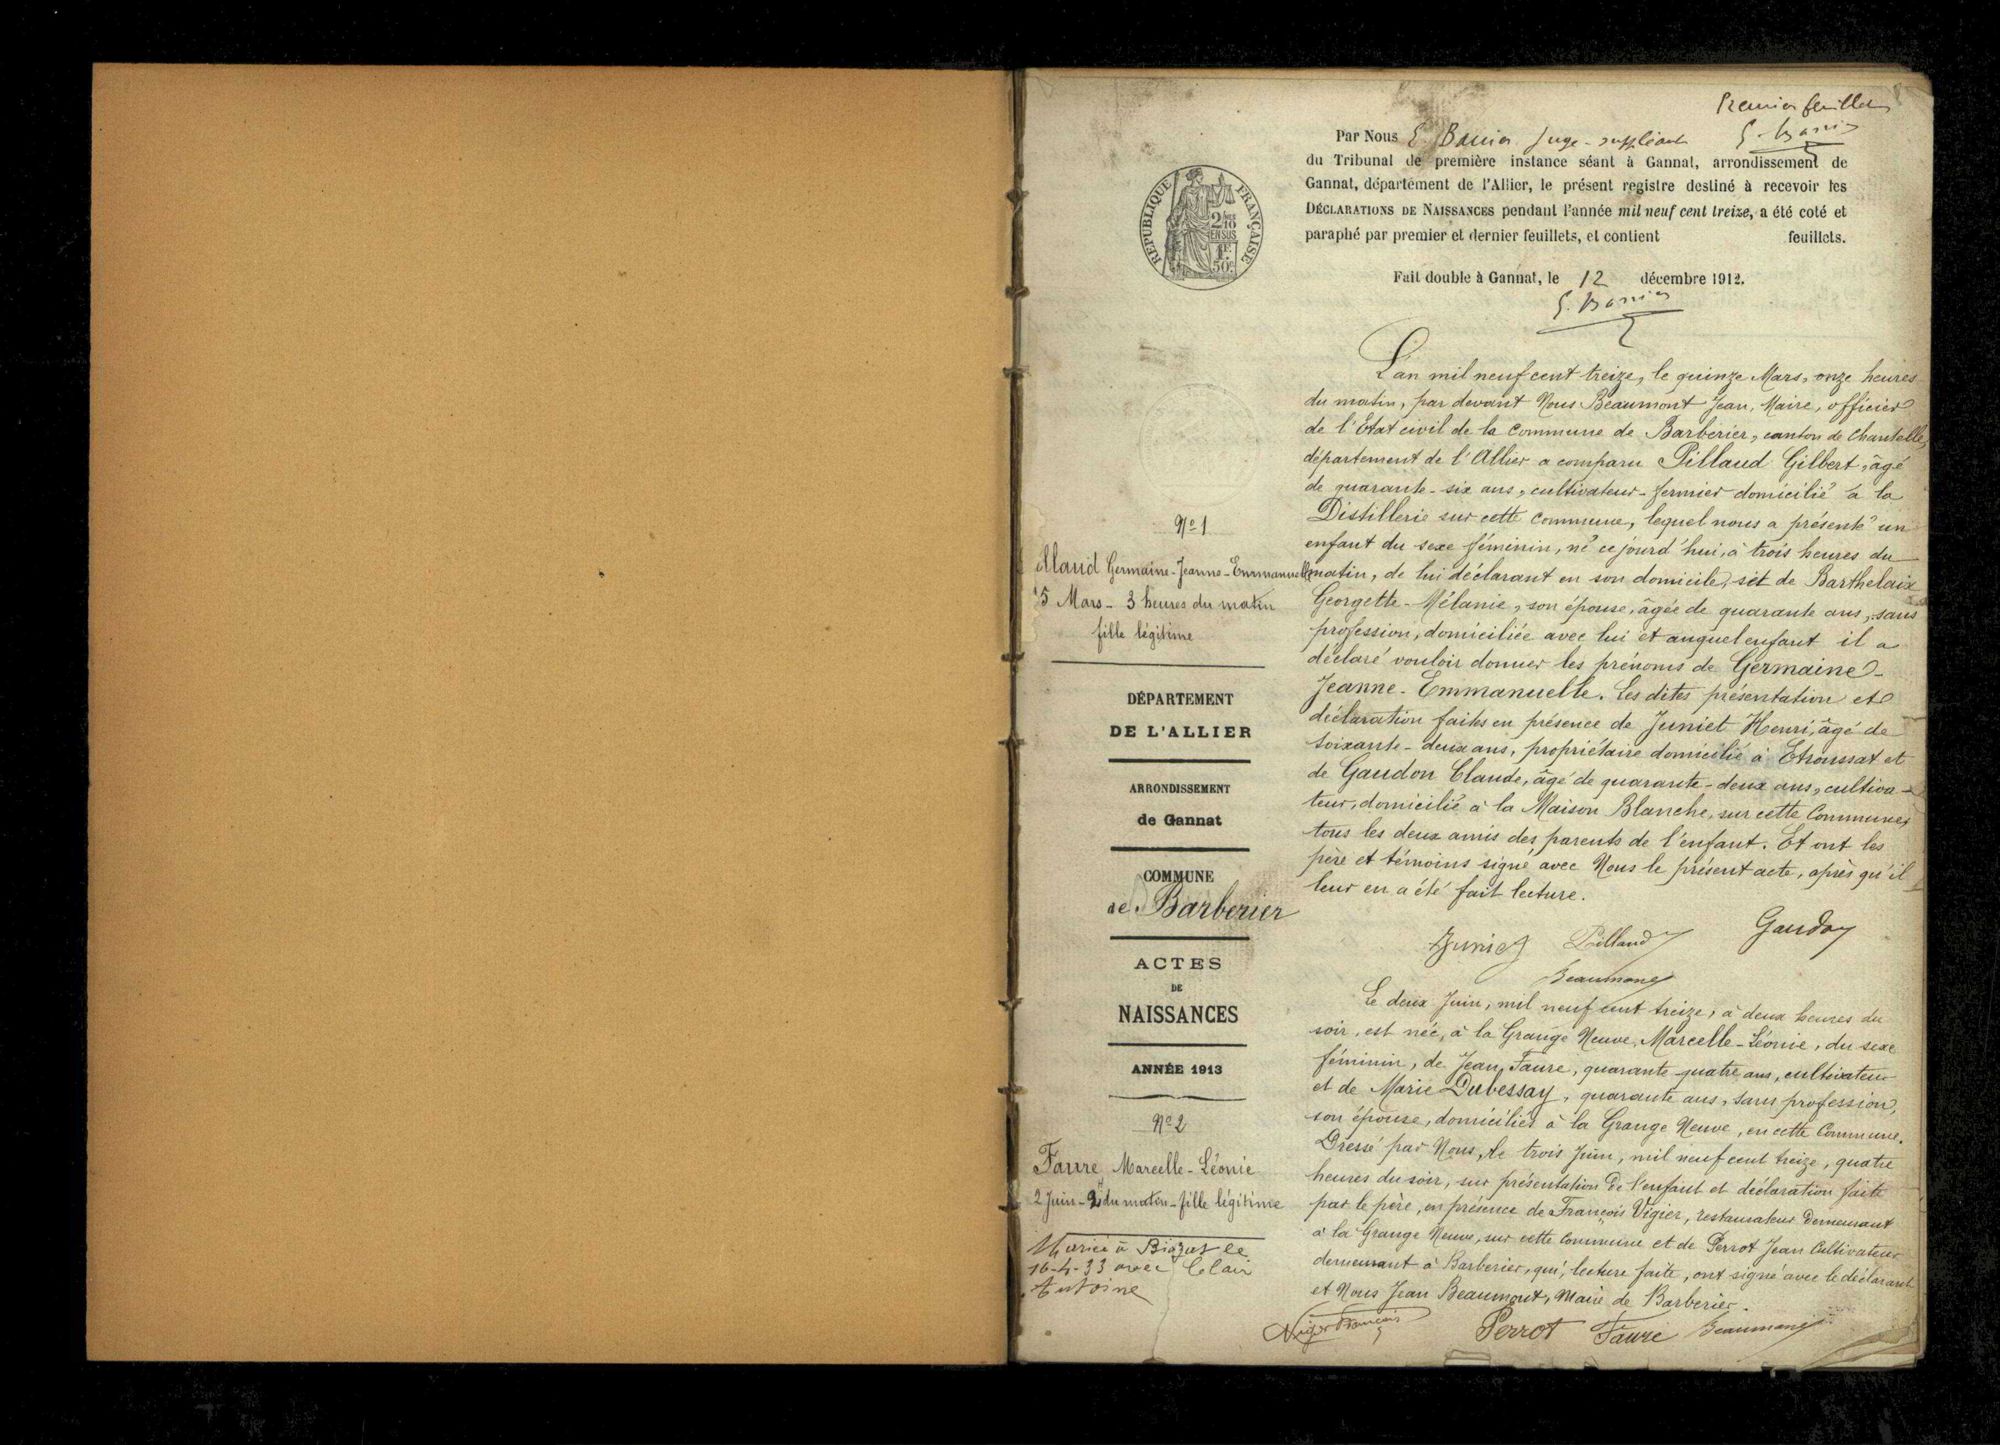 Premier feuillet
Par Nous E. Barrier Juge-suppléant
du Tribunal de première instance séant à Gannat, arrondissement de
Gannat, département de l'Allier, le présent registre destiné à recevoir les
DÉCLARATIONS DE NAISSANCES pendant l'année mil neuf cent treize, a été coté et
paraphé par premier et dernier feuillets, et contient feuillets.
Fait double à Gannat, le 12 décembre 1912.
RÉPUBLIQUE FRANÇAISE
2/10
EN SUS
1F.
50c
L'an mil neuf cent treize, le quinze Mars, onze heures
du matin, par devant Nous Beaumont Jean, Maire, officier
de l'Etat civil de la Commune de Barberier, canton de Chantelle,
département de l'Allier a comparu Pillaud Gilbert, âgé
de quarante-six ans, cultivateur-fermier domicilié à la
Distillerie sur cette Commune, lequel nous a présenté un
enfant du sexe féminin, né cejourd'hui, à trois heures du
matin, de lui déclarant en son domicile, et de Barthelaix
Georgette-Mélanie, son épouse, âgée de quarante ans, sans
profession, domiciliée avec lui et auquel enfant il a
déclaré vouloir donner les prénoms de Germaine-
Jeanne-Emmanuelle. Les dites présentation et
déclaration faites en présence de Juniet Henri, âgé de
soixante-deux ans, propriétaire domicilié à Etroussat et
de Gaudon Claude, âgé de quarante-deux ans, cultiva-
teur, domicilié à la Maison Blanche, sur cette Commune,
tous les deux amis des parents de l'enfant. Et ont les
père et témoins signé avec Nous le présent acte, après qu'il
leur en a été fait lecture.
Juniet Pillaud Gaudon
Beaumont
N° 1
illaud Germaine-Jeanne-Emmanuelle
5 Mars - 3 heures du matin
fille légitime
DÉPARTEMENT
DE L'ALLIER
ARRONDISSEMENT
de Gannat
COMMUNE
de Barberier
ACTES
DE
NAISSANCES
ANNÉE 1913
N° 2
Faure Marcelle-Léonie
2 Juin - 2h du matin - fille légitime
Mariée à Biozat le
16-4-33 avec Clair
Antoine
Le deux Juin, mil neuf cent treize, à deux heures du
soir, est née, à la Grange Neuve, Marcelle-Léonie, du sexe
féminin, de Jean Faure, quarante quatre ans, cultivateur
et de Marie Dubessay, quarante ans, sans profession,
son épouse, domiciliés à la Grange Neuve, en cette Commune.
Dressé par Nous, le trois Juin, mil neuf cent treize, quatre
heures du soir, sur présentation de l'enfant et déclaration faite
par le père, en présence de François Vigier, restaurateur demeurant
à la Grange Neuve, sur cette commune et de Perrot Jean Cultivateur
demeurant à Barberier, qui, lecture faite, ont signé avec le déclarant
et Nous Jean Beaumont, Maire de Barberier.
Vigier François Perrot Faure Beaumont